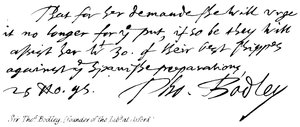 That for her demande she will urge
it no longer for yᵗ put, if so be they will
assist her wᵗ 30. of their best shippes
against yᵉ Spanishe preparations.
25 No. 95. Tho. Bodley
Sir Thoˢ. Bodley, Founder of the